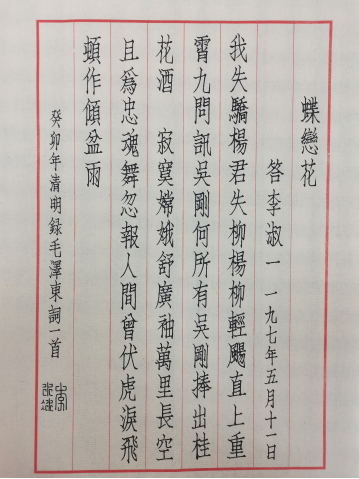 蝶戀花
答李淑一 一九七年五月十一日
我失驕楊君失柳楊柳輕颺直上重
霄九問訊吳剛何所有吳剛捧出桂
花酒 寂寞嫦娥舒廣袖萬里長空
且爲忠魂舞忽報人間曾伏虎淚飛
頓作傾盆雨
癸卯年清明録毛澤東詞一首